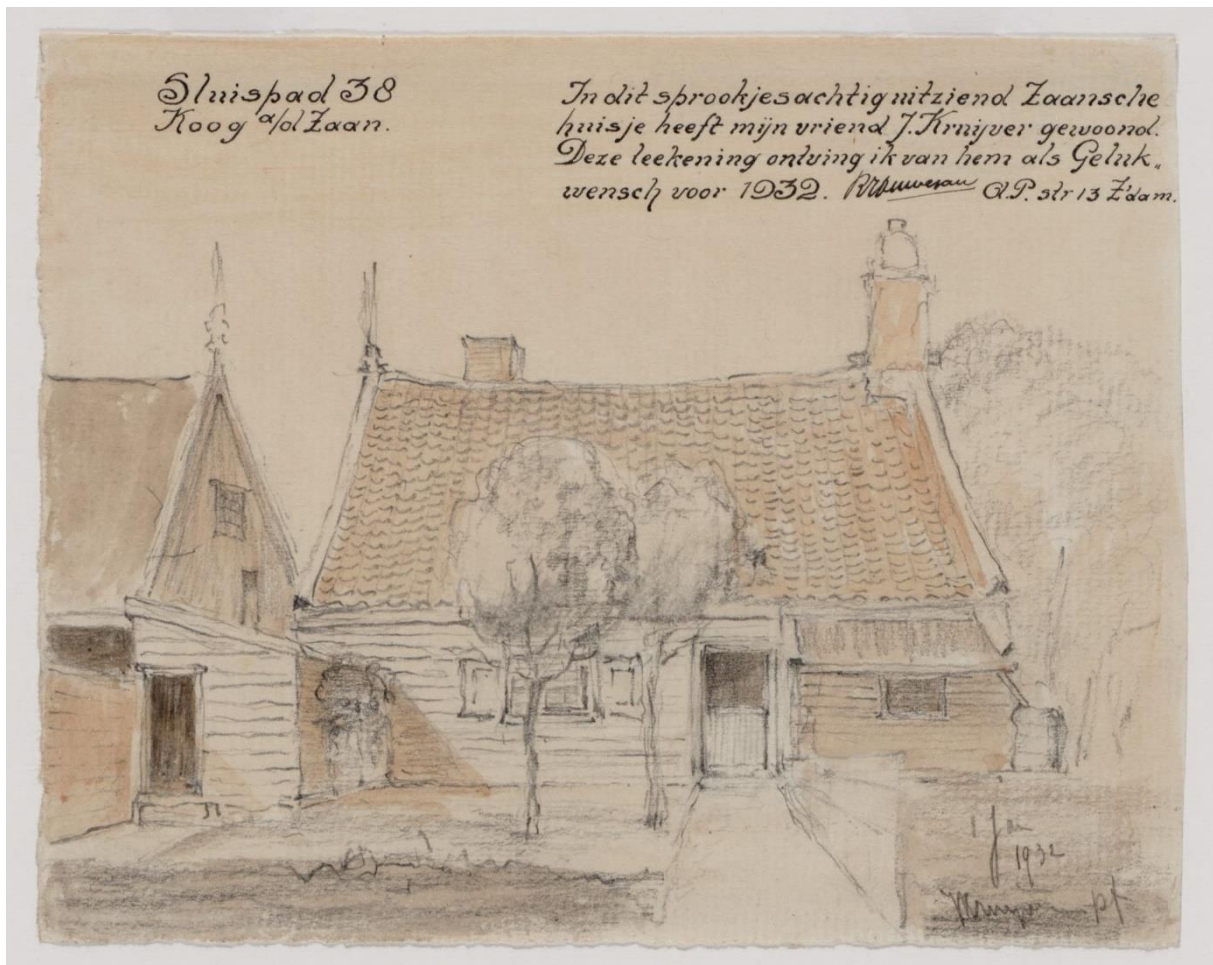 Sluispad 38
Koog a/d Zaan.
In dit sprookjesachtig uitziend Zaansche
huisje heeft mijn vriend J. Kruijver gewoond.
Deze teekening ontving ik van hem als Geluk-
wensch voor 1932. Q.P. str 13 Z'dam.
1 Jan
1932